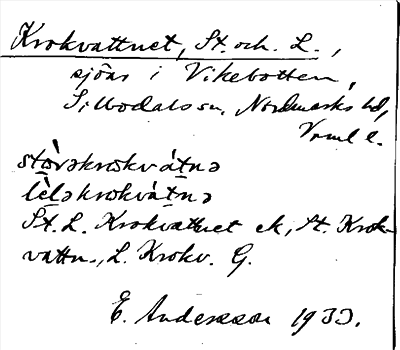 Krokvattnet, St. och. L.,
sjöar i Vikebotten,
Sillbodals sn, Nordmarks hd,
Vrml l.
stòrəkrokvátnə
lìləkrokvátnə
St. L. Krokvattnet ek, St. Krok-
vattn., L. Krokv. G.
E. Andersson 1933.